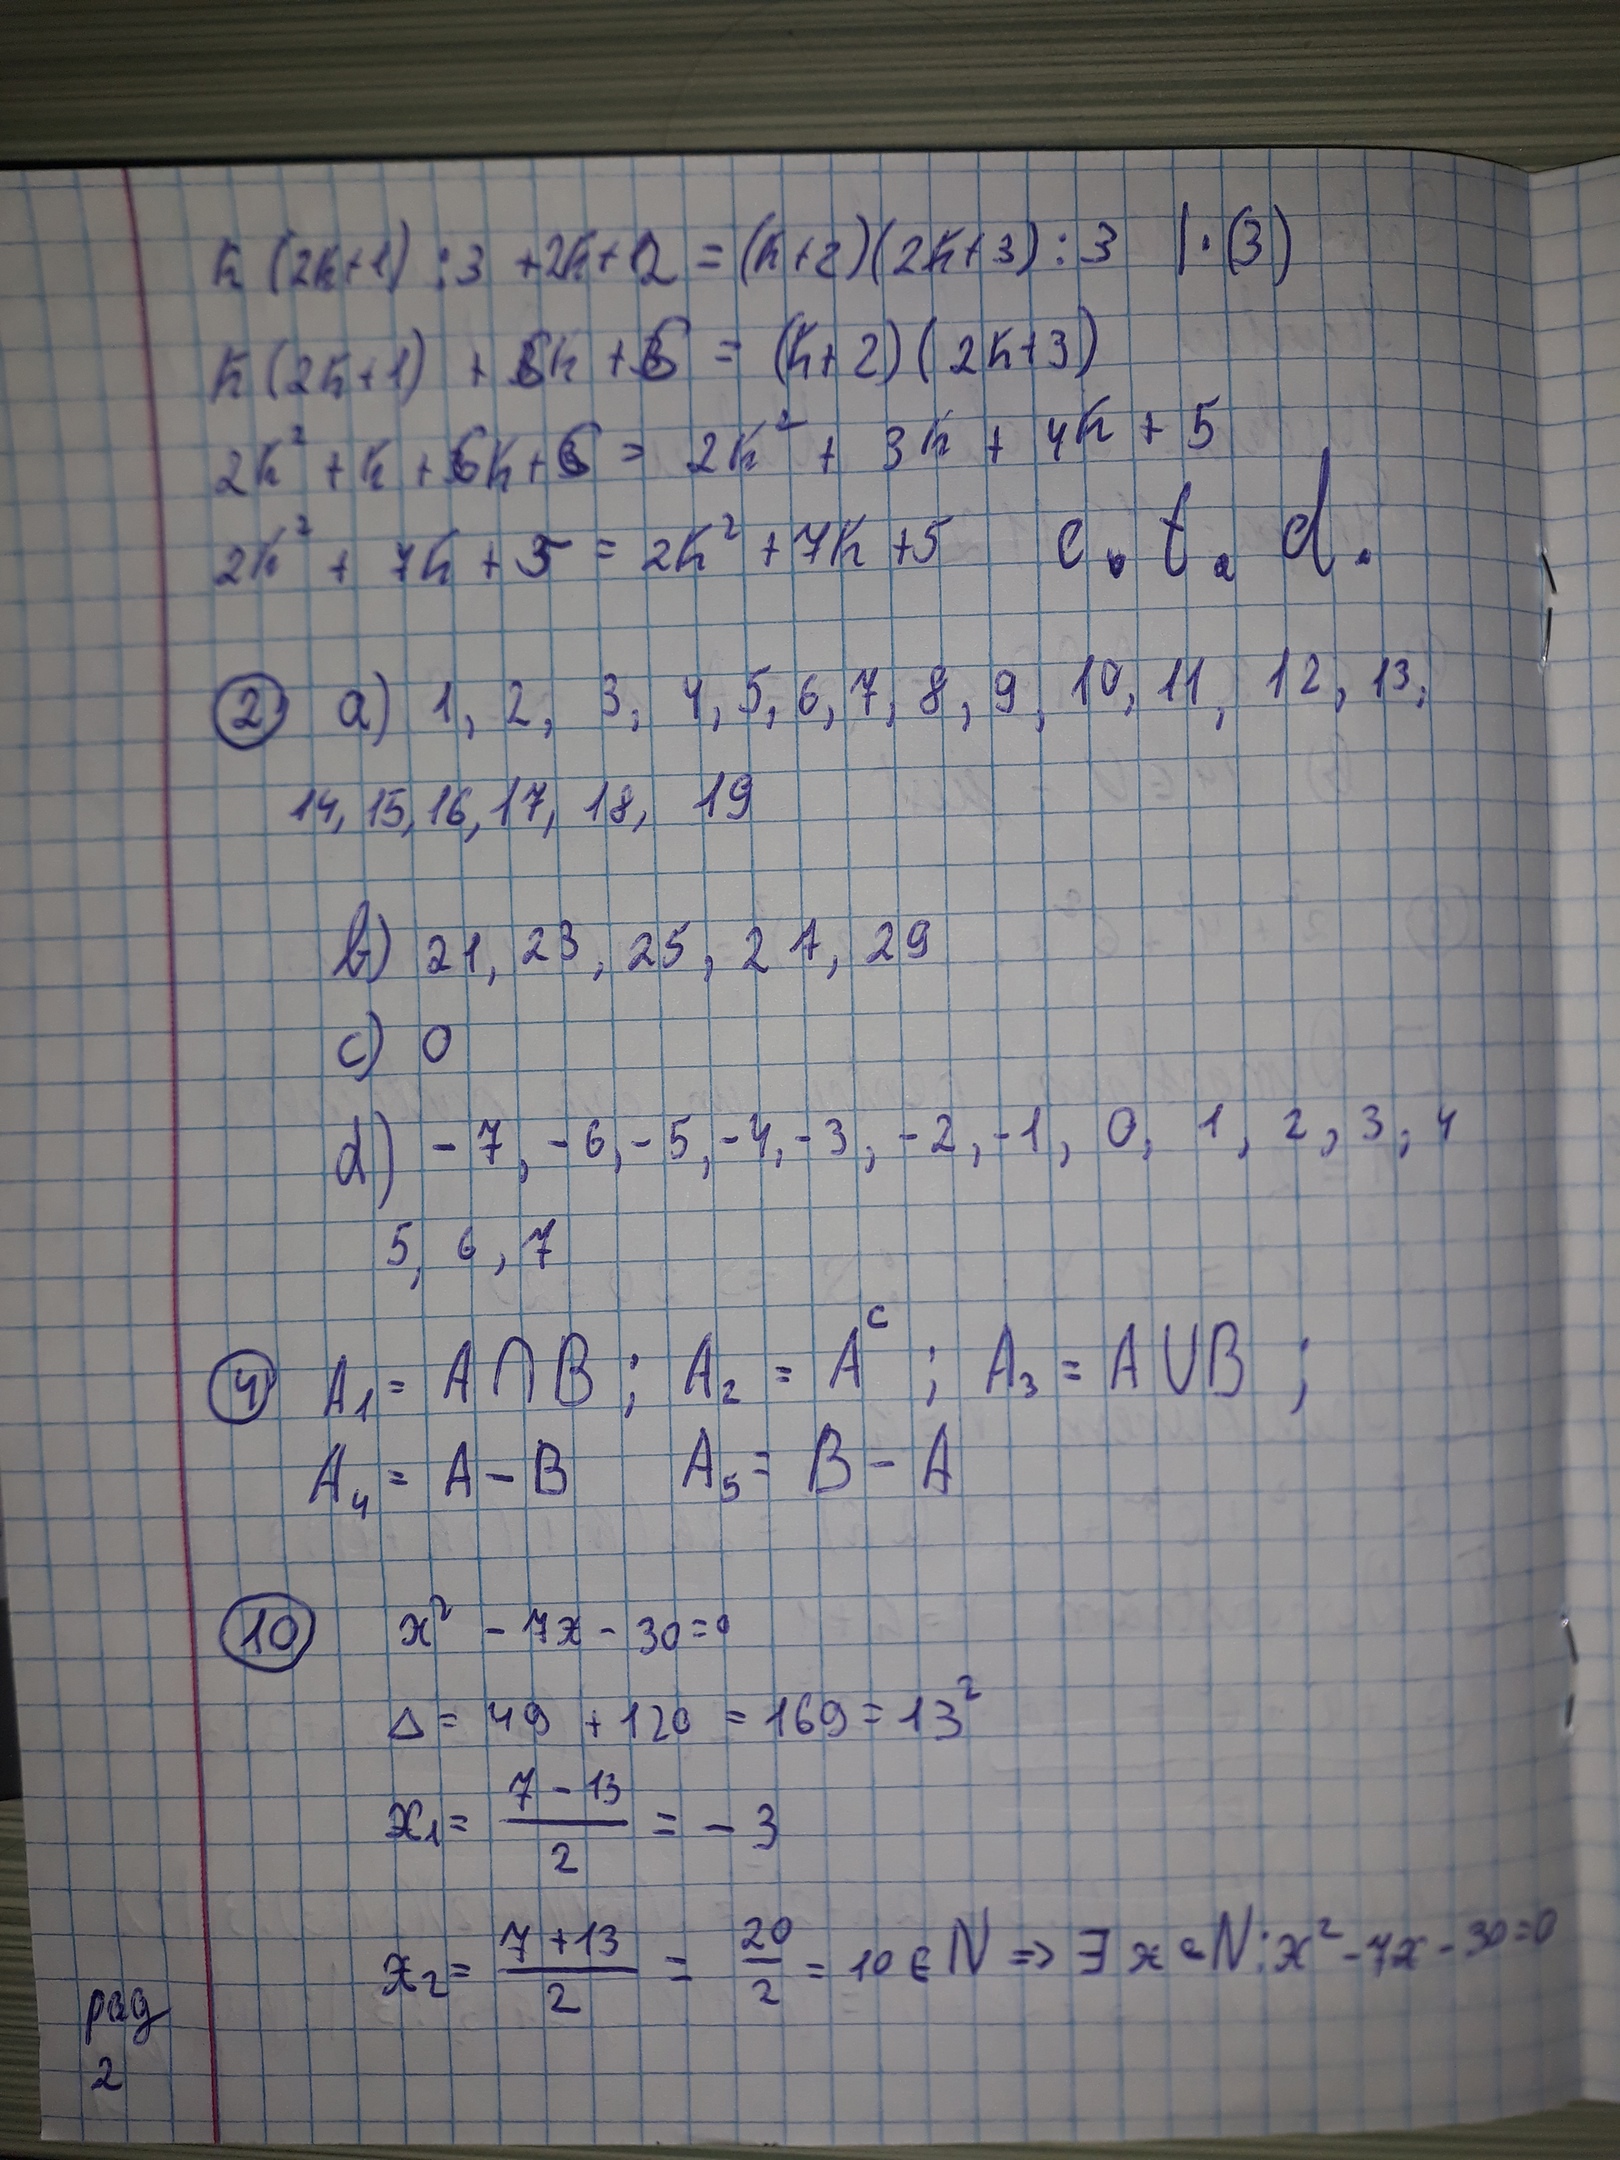 k(2k+1):3 +2k+2 = (k+2)(2k+3):3 |·(3)
k(2k+1) + 6k + 6 = (k+2)(2k+3)
2k² + k + 6k + 6 = 2k² + 3k + 4k + 5
2k² + 7k + 5 = 2k² + 7k + 5 c. t. d.
② a) 1, 2, 3, 4, 5, 6, 7, 8, 9, 10, 11, 12, 13,
14, 15, 16, 17, 18, 19
b) 21, 23, 25, 27, 29
c) 0
d) -7, -6, -5, -4, -3, -2, -1, 0, 1, 2, 3, 4
5, 6, 7
④ A₁ = A ∩ B ; A₂ = Aᶜ ; A₃ = A ∪ B ;
A₄ = A − B A₅ = B − A
⑩ x² - 7x - 30 = 0
Δ = 49 + 120 = 169 = 13²
x₁ = (7 - 13)/2 = -3
x₂ = (7 + 13)/2 = 20/2 = 10 ∈ N ⇒ ∃ x ∈ N : x² - 7x - 30 = 0
pag
2